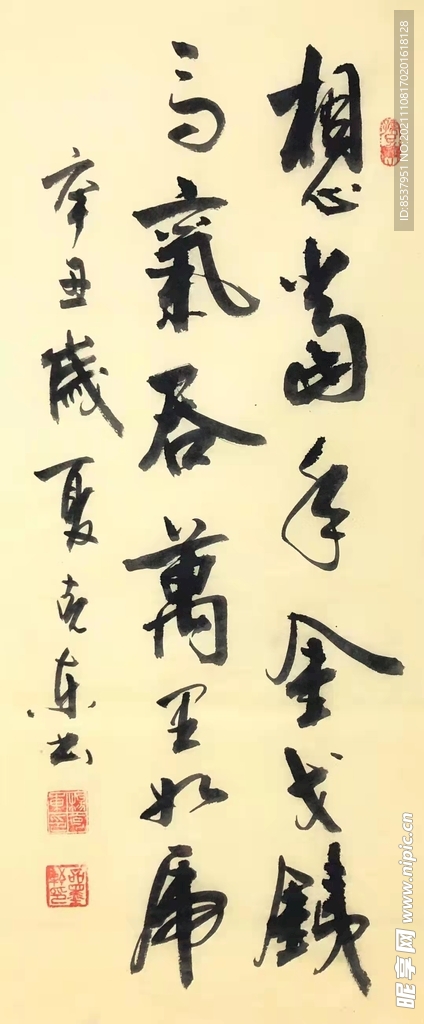 想當年金戈鐵
馬氣吞萬里如虎
辛丑歲夏克東書
ID:8537951 NO:20211108170201618128
昵享网 www.nipic.cn